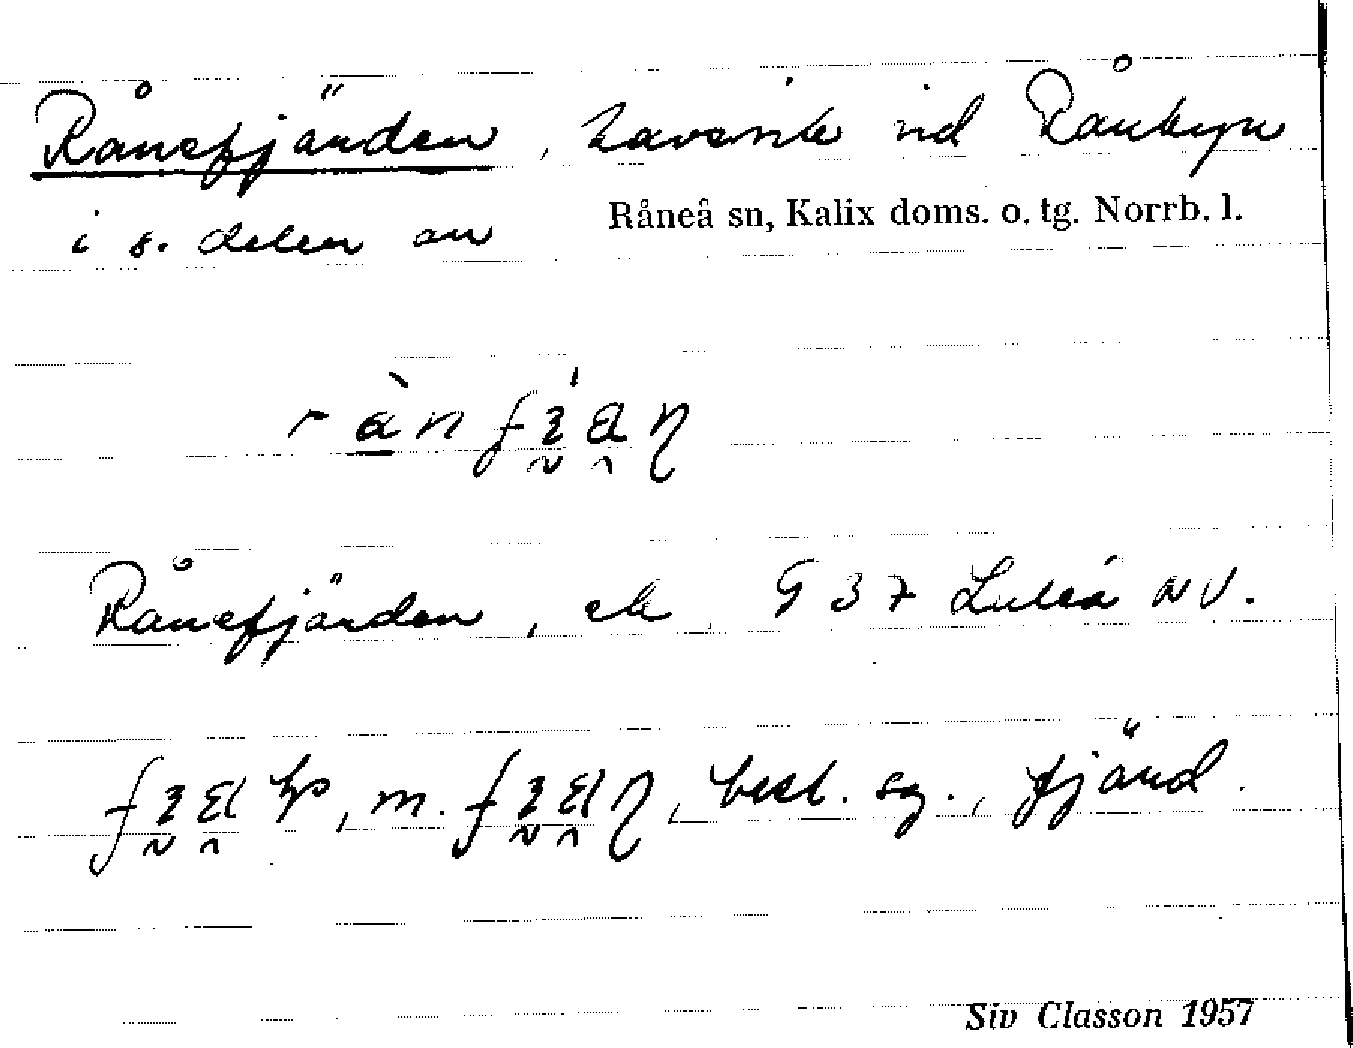 Rånefjärden, havsvik vid Rånbyn
i s. delen av Råneå sn, Kalix doms. o. tg. Norrb. l.
Rånefjärden, ek 937 Luleå NV.
m. best. sg., fjärd.
Siv Classon 1957